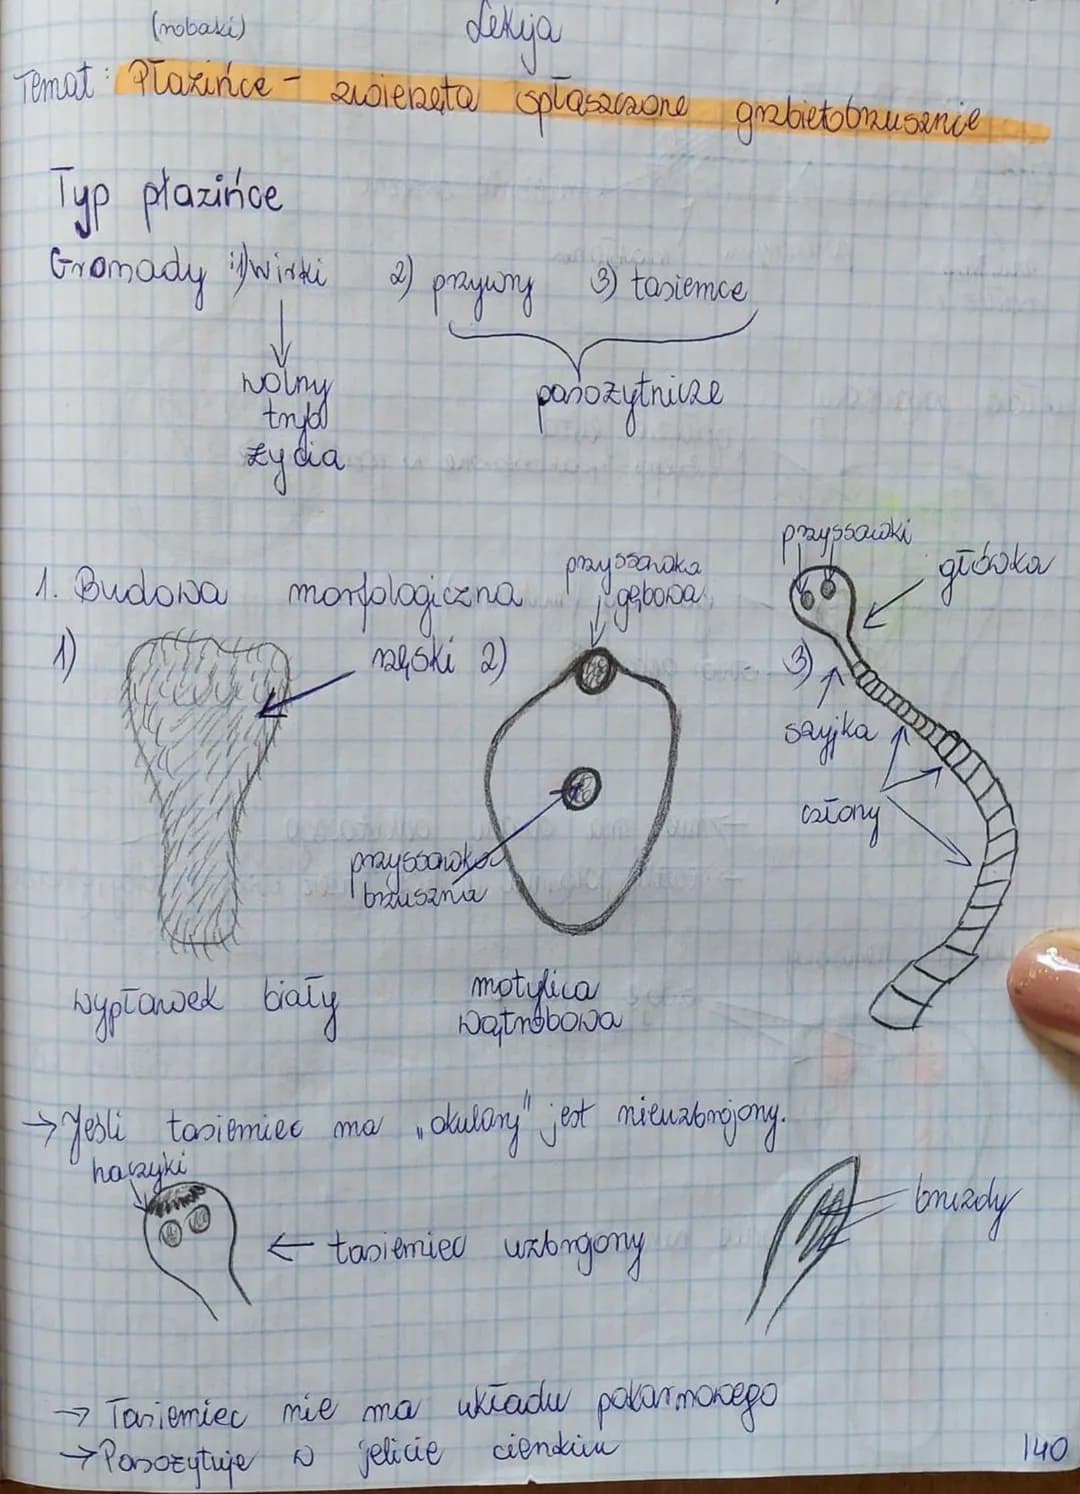 (robaki) Lekcja
Temat: Płazińce - zwierzęta spłaszczone grzbietobrzusznie
Typ płazińce
Gromady: 1) wirki 2) przywry 3) tasiemce
wolny
tryb
życia
pasożytnicze
1. Budowa morfologiczna
przyssawka
gębowa
przyssawki
główka
1)
rzęski
2)
3)
szyjka
człony
przyssawka
brzuszna
wypławek biały
motylica
wątrobowa
→ Jeśli tasiemiec ma „okulary" jest nieuzbrojony.
haczyki
← tasiemiec uzbrojony
bruzdy
→ Tasiemiec nie ma układu pokarmowego
→ Pasożytuje w jelicie cienkim
140